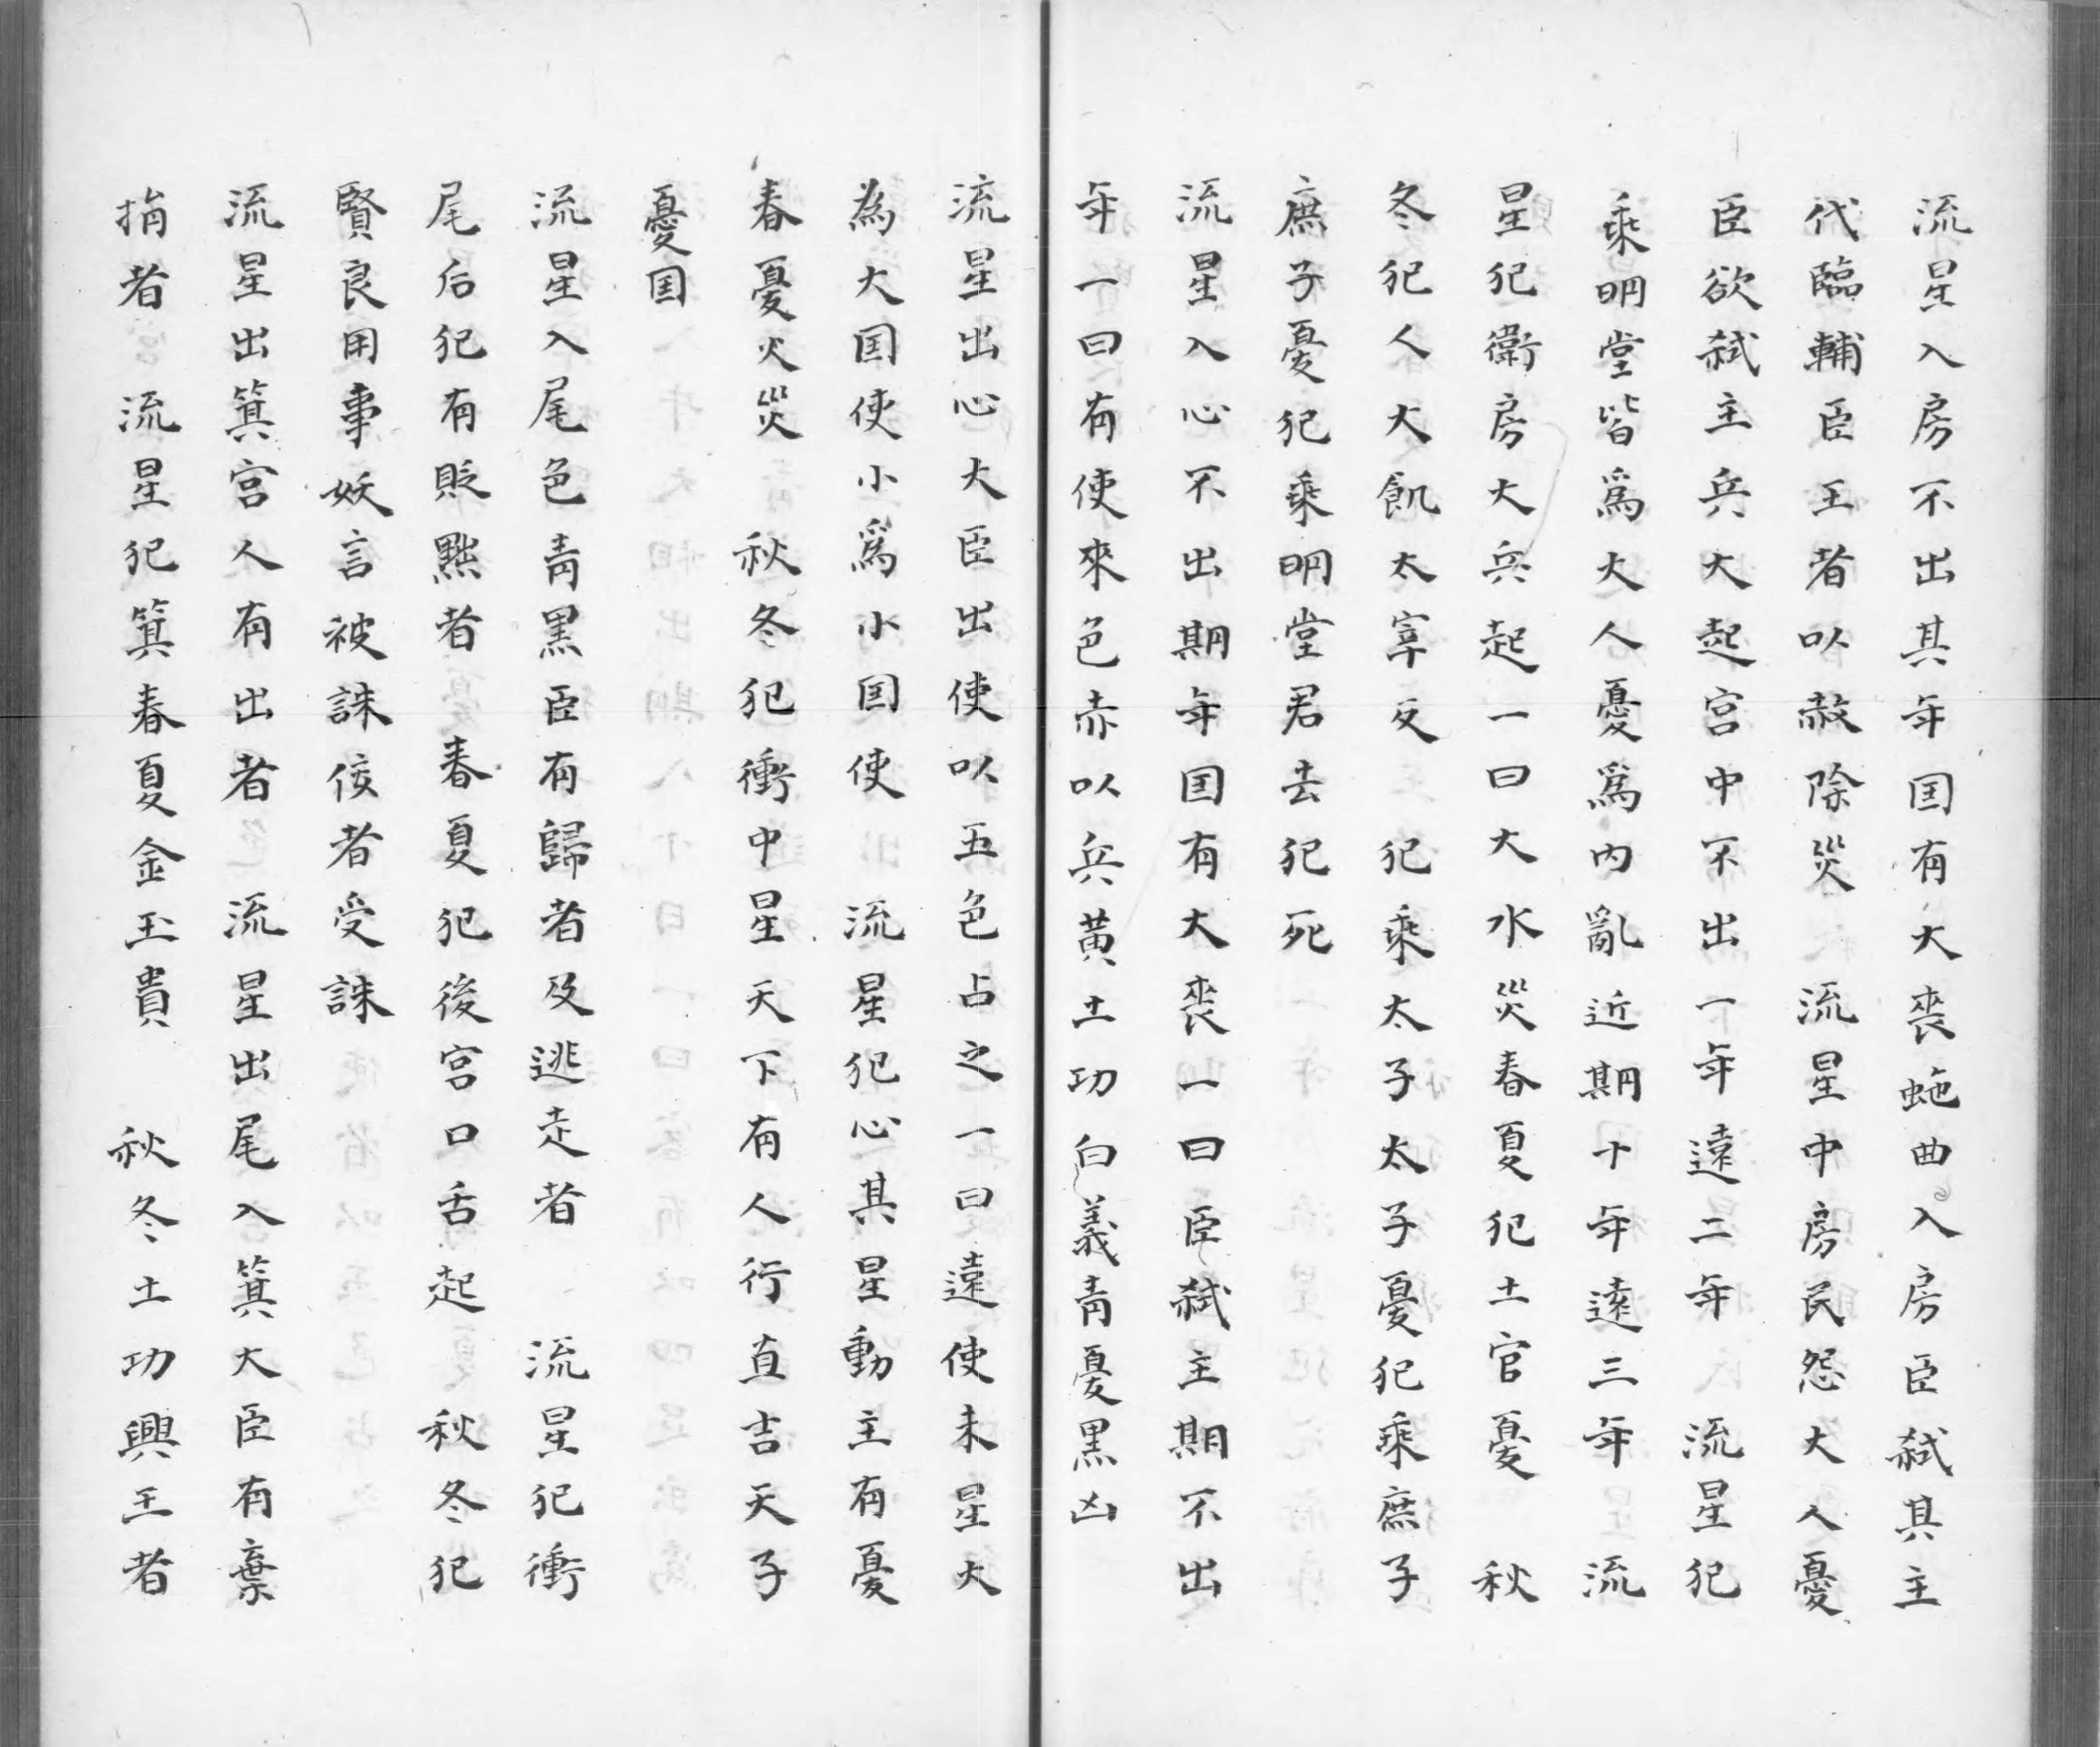 流星入房不出其年囯有大喪虵曲入房臣弑其主
代臨輔臣王者以赦除災　流星中房民怨大人憂
臣欲弑主兵大起宫中不出一年遠二年　流星犯
乘明堂皆爲大人憂爲内亂近期十年遠三年　流
星犯衛房大兵起一曰大水災春夏犯土官憂　秋
冬犯人大飢太宰反　犯乘太子太子憂犯乘庶子
庶子憂犯乘明堂君去犯死
流星入心不出期年囯有大喪一曰臣弑主期不出
年一曰有使來色赤以兵黄土功白義青憂黒凶
流星出心大臣出使以五色占之一曰遠使未星大
為大囯使小爲小囯使　流星犯心其星動主有憂
春憂火災　秋冬犯衝中星天下有人行直吉天子
憂囯
流星入尾色青黒臣有歸者及逃走者　流星犯衝
尾后犯有貶黜者　春夏犯後宫口舌起　秋冬犯
賢良用事妖言被誅侫者受誅
流星出箕宫人有出者　流星出尾入箕大臣有棄
捐者　流星犯箕春夏金玉貴　秋冬土功興王者